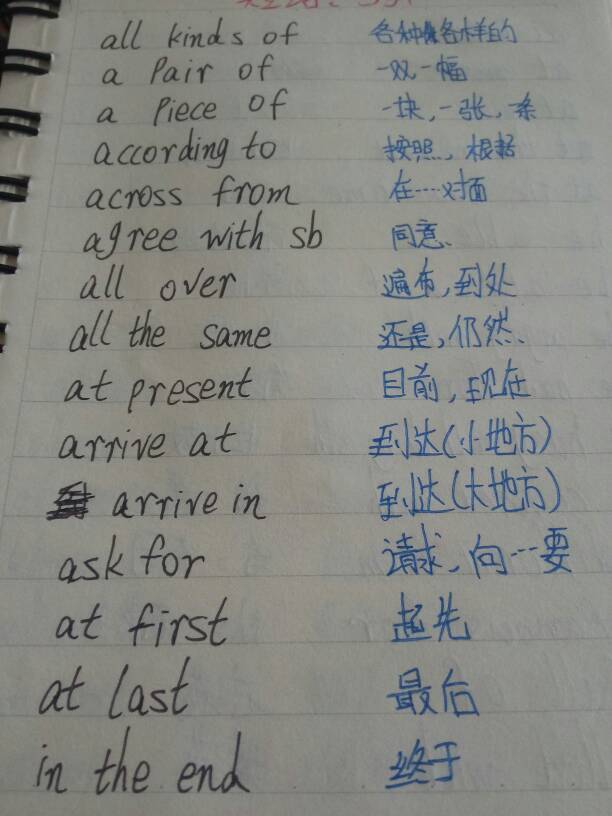 all kinds of 各种各样的
a Pair of 一双一幅
a Piece of 一块,一张,一条
according to 按照、根据
across from 在…对面
agree with sb 同意、
all over 遍布,到处
all the same 还是,仍然、
at present 目前,现在
arrive at 到达(小地方)
arrive in 到达(大地方)
ask for 请求、向…要
at first 起先
at last 最后
in the end 终于